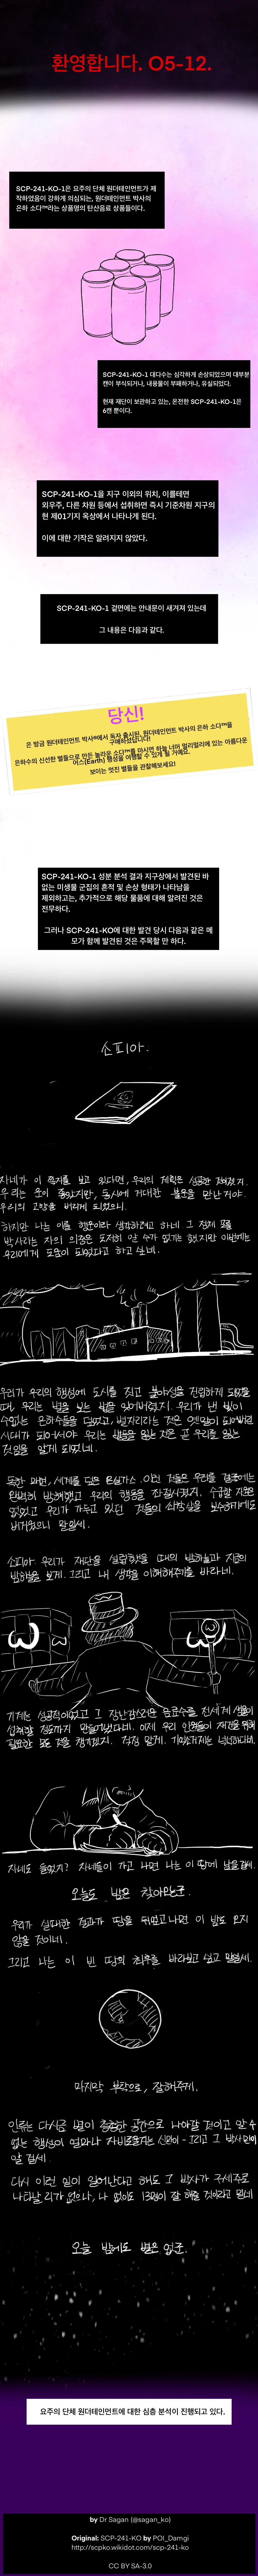 환영합니다. O5-12.
SCP-241-KO-1은 요주의 단체 원더테인먼트가 제
작하였음이 강하게 의심되는, 원더테인먼트 박사의
은하 소다™라는 상품명의 탄산음료 상품들이다.
SCP-241-KO-1 대다수는 심각하게 손상되었으며 대부분
캔이 부식되거나, 내용물이 부패하거나, 유실되었다.
현재 재단이 보관하고 있는, 온전한 SCP-241-KO-1은
6캔 뿐이다.
SCP-241-KO-1을 지구 이외의 위치, 이를테면
외우주, 다른 차원 등에서 섭취하면 즉시 기준차원 지구의
현 제01기지 옥상에서 나타나게 된다.
이에 대한 기작은 알려지지 않았다.
SCP-241-KO-1 겉면에는 안내문이 새겨져 있는데
그 내용은 다음과 같다.
당신!
은 방금 원더테인먼트 박사®에서 독자 출시된, 원더테인먼트 박사의 은하 소다™을
구매하셨답니다!
은하수의 신선한 별들으로 만든 놀라운 소다™를 마시면 하늘 너머 멀리멀리에 있는 아름다운
어스(Earth) 행성을 여행할 수 있게 될 거예요.
보이는 멋진 별들을 관찰해보세요!
SCP-241-KO-1 성분 분석 결과 지구상에서 발견된 바
없는 미생물 군집의 흔적 및 손상 형태가 나타남을
제외하고는, 추가적으로 해당 물품에 대해 알려진 것은
전무하다.
그러나 SCP-241-KO에 대한 발견 당시 다음과 같은 메
모가 함께 발견된 것은 주목할 만 하다.
소피아.
자네가 이 쪽지를 보고 있다면, 우리의 계획은 성공한 것이겠지.
우리는 운이 좋았지만, 동시에 거대한 불운을 만난거야.
우리의 고향을 버리게 되었으니.
하지만 나는 이를 행운이라 생각하려고 하네. 그 전체
박사라는 자의 의중은 도저히 알 수가 없기는 했지만 이번에는
우리에게 도움이 되었다고 하고 싶네.
우리가 우리의 행성에 도시를 짓고 불야성을 건립하게 되었을
때, 우리는 별을 보는 법을 잊어버렸지. 우리가 낸 빛이
수없는 은하수들을 덮었고, 별자리라는 것은 옛말이 되어버린
시대가 되어서야 우리는 별들을 잃는 것은 곧 우리를 잃는
것임을 알게 되었네.
독한 화면, 세계를 덮은 온실가스. 이런 것들은 우리를
완벽히 방해했고 우리의 행동을 좌절시켰지. 수급할 자원은
없었고 우리가 가두고 있던 것들의 시설을 보수하기에도
버거웠으니 말일세.
소피아. 우리가 재단을 설립했을 때의 밤하늘과 지금의
밤하늘을 보게. 그리고 내 생각을 이해해주기를 바라네.
기계는 성공적이었고 그 장난감 음료수를 전세계 생물이
섭취할 정도까지 만들어졌다네. 이제 우리 인원들이 재건을 위해
필요한 모든 것을 챙기겠지. 걱정 말게. 기억소거제는 넉넉하다네.
자네도 들었지? 자네들이 가고 나면 나는 이 땅에 남을걸세.
오늘도 밤은 찾아오는군.
우리가 실패한 결과가 땅을 뒤엎고 나면 이 밤도 오지
않을 것이네.
그리고 나는 이 빈 땅의 최후를 바라보고 싶고 말일세.
마지막 부탁으로, 잘해주게.
인류는 다시금 별이 총총한 공간으로 나아갈 것이고 알 수
없는 행성이 얼마나 자비로울지는 신만이 - 그리고 그 박사만이
알 걸세.
다시 이런 일이 일어난다고 해도 그 박사가 구세주로
나타날 리가 없으나, 나 없이도 13명이 잘 해줄 것이라고 믿네
오늘 밤에도 별은 없군.
요주의 단체 원더테인먼트에 대한 심층 분석이 진행되고 있다.
by Dr Sagan (@sagan_ko)
Original: SCP-241-KO by POI_Damgi
http://scpko.wikidot.com/scp-241-ko
CC BY SA-3.0